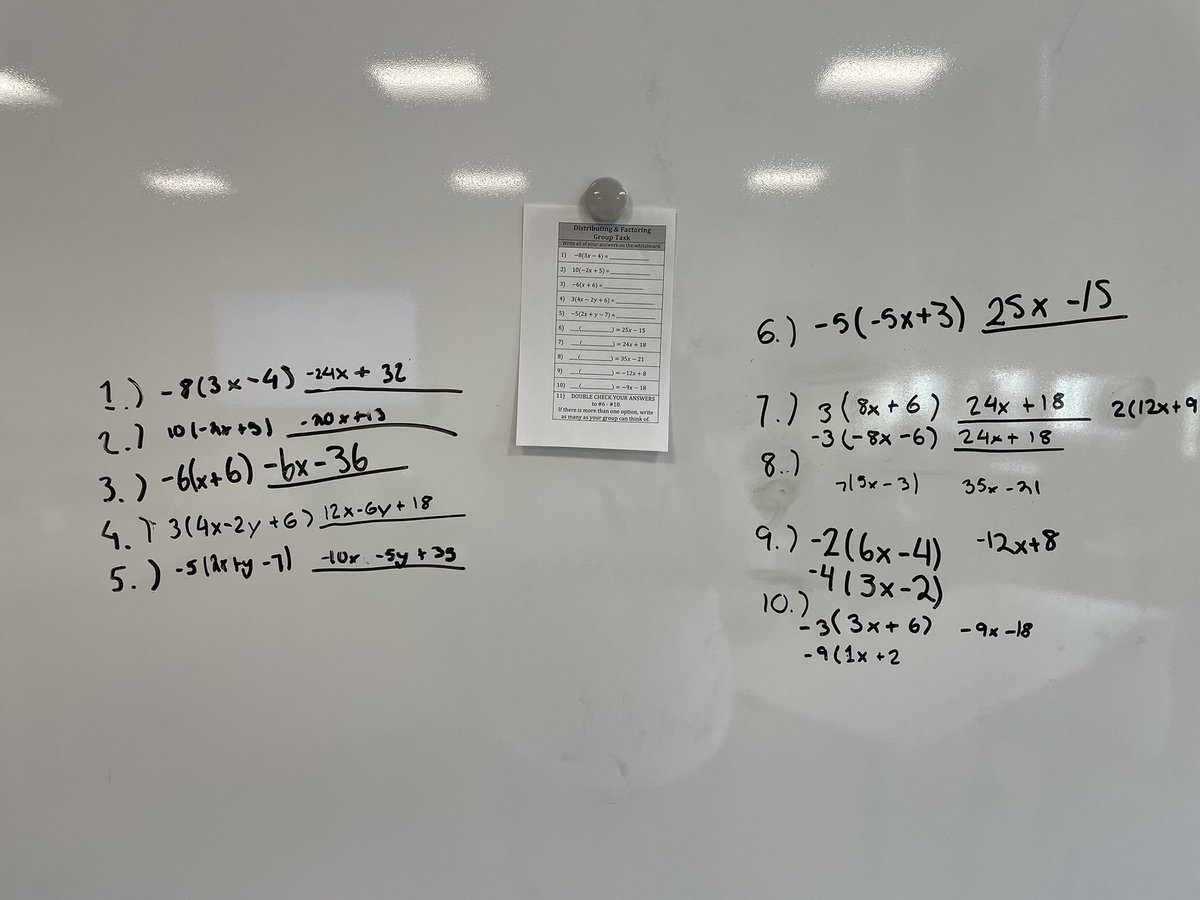 1.) -8(3x-4) -24x + 32
2.) -20x
3.) -6(x+6) -6x-36
4.) 3(4x-2y+6) 12x-6y+18
5.) -5(2x+y-7) -10x -5y + 35
Distributing & Factoring
Group Task
Write all of your answers on the whiteboard.
1) -8(3x - 4) = ________
2) 10(-2x + 5) = ________
3) -6(x + 6) = ________
4) 3(4x - 2y + 6) = ________
5) -5(2x + y - 7) = ________
6) __(________) = 25x - 15
7) __(________) = 24x + 18
8) __(________) = 35x - 21
9) __(________) = -12x + 8
10) __(________) = -9x - 18
11) DOUBLE CHECK YOUR ANSWERS
to #6 - #10.
If there is more than one option, write
as many as your group can think of.
6.) -5(-5x+3) 25x -15
7.) 3(8x+6) 24x +18 2(12x+9
-3(-8x-6) 24x+18
8.)
7(5x-3) 35x-21
9.) -2(6x-4) -12x+8
-4(3x-2)
10.)
-3(3x+6) -9x-18
-9(1x+2